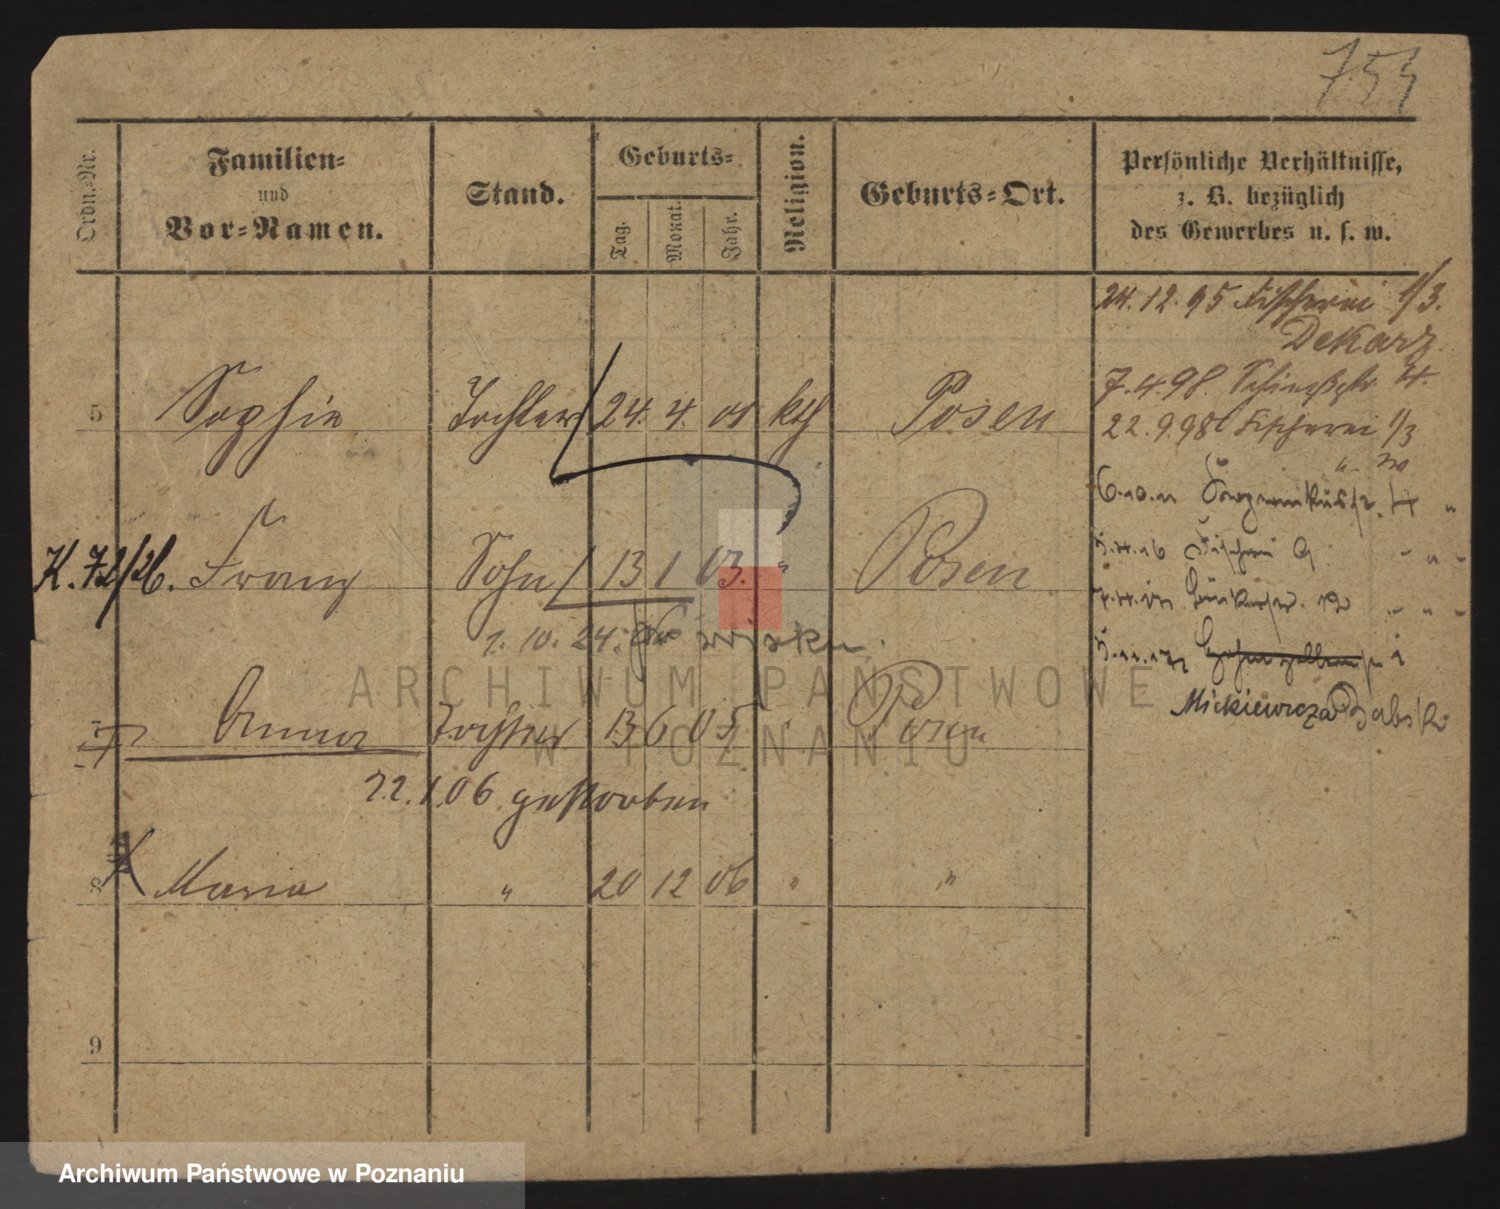 753
Ordn.-Nr.
Familien-
und
Vor-Namen.
Stand.
Geburts-
Tag.
Monat.
Jahr.
Religion.
Geburts-Ort.
Persönliche Verhältnisse,
z. B. bezüglich
des Gewerbes u. s. w.
24.12.95 Fischerei 1/3.
Dekarz
7.4.98. Schiesstr. 4.
22.9.98 Fischerei 1/3
5 Sophie Tochter 24. 4. 01 kth Posen
K. 72/26. Franz Sohn 13 1 03. " Posen
1. 10. 24. do wojska.
7 Anna Tochter 13 6 05 " Posen
22.1.06 gestorben
Mickiewicza
8 Maria " 20 12 06 " "
9
ARCHIWUM PAŃSTWOWE
W POZNANIU
Archiwum Państwowe w Poznaniu